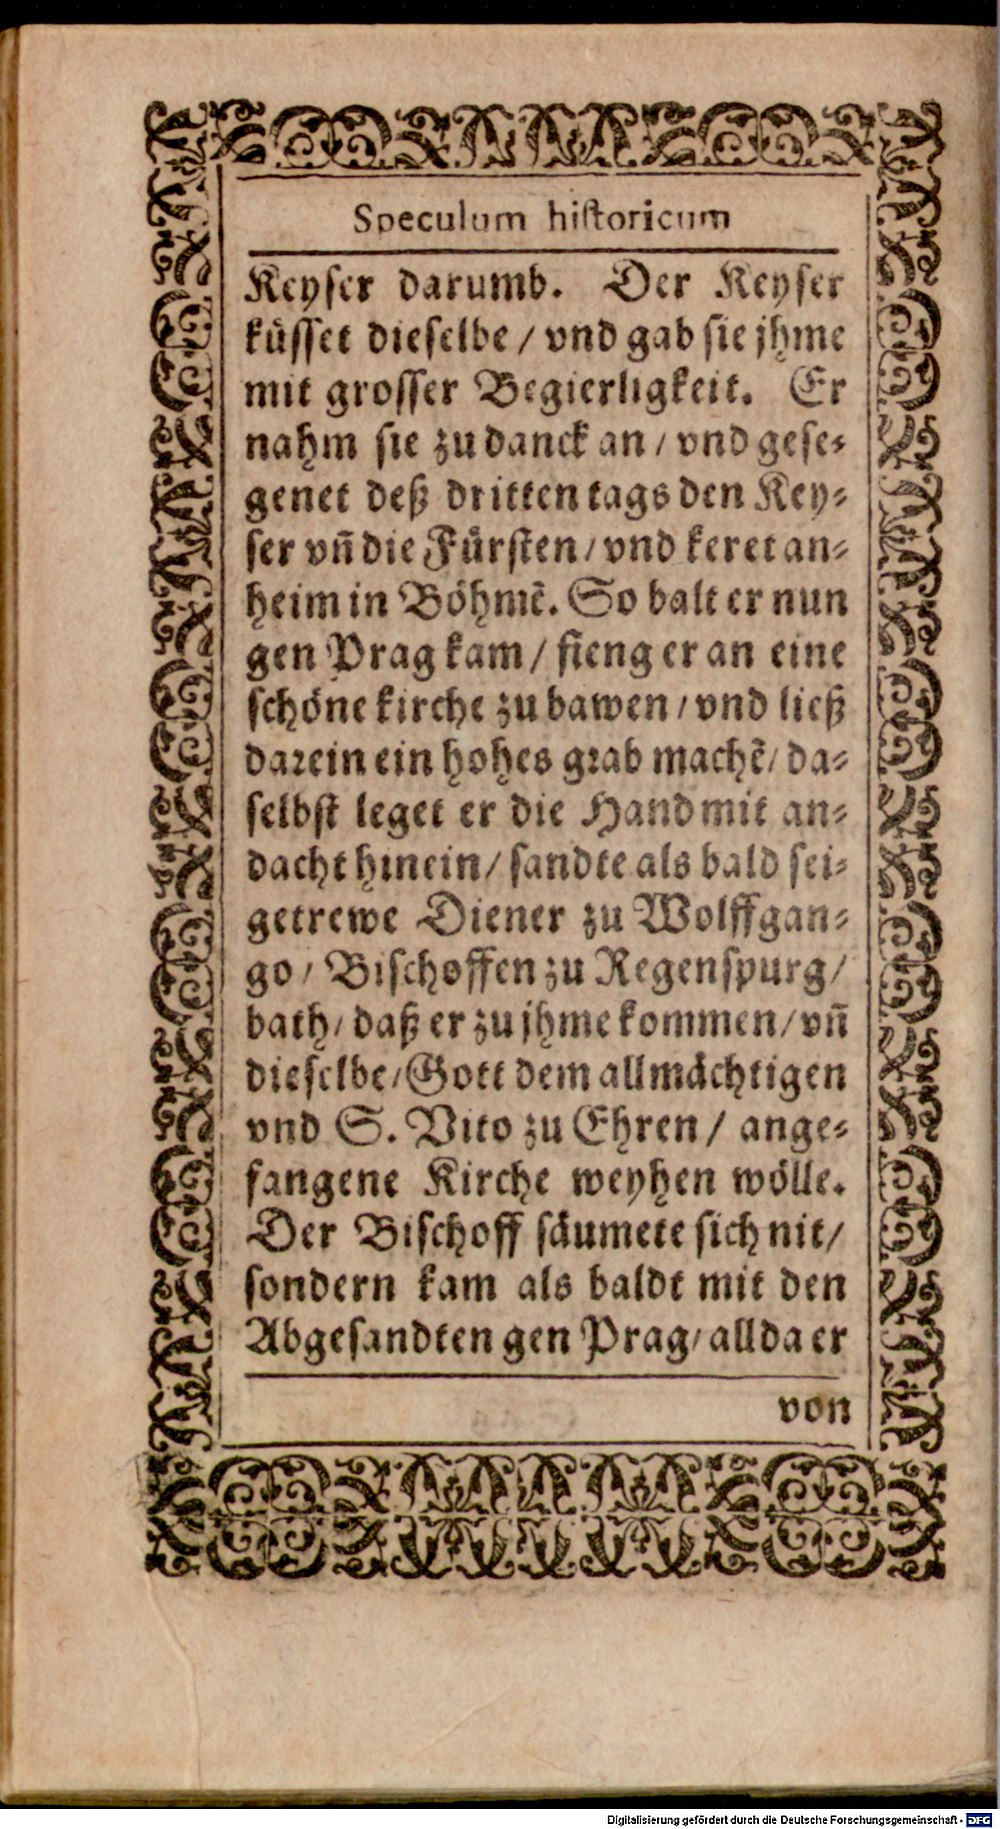 Speculum historicum
Keyser darumb. Der Keyser
küsset dieselbe / vnd gab sie jhme
mit grosser Begierligkeit. Er
nahm sie zu danck an / vnd gese-
genet deß dritten tags den Key-
ser vñ die Fürsten / vnd keret an-
heim in Böhmẽ. So balt er nun
gen Prag kam / fieng er an eine
schöne kirche zu bawen / vnd ließ
darein ein hohes grab machẽ / da-
selbst leget er die Hand mit an-
dacht hinein / sandte als bald sei-
getrewe Diener zu Wolffgan-
go / Bischoffen zu Regenspurg /
bath / daß er zu jhme kommen / vñ
dieselbe / Gott dem allmächtigen
vnd S. Vito zu Ehren / ange-
fangene Kirche weyhen wölle.
Der Bischoff säumete sich nit /
sondern kam als baldt mit den
Abgesandten gen Prag / allda er
von
Digitalisierung gefördert durch die Deutsche Forschungsgemeinschaft - DFG